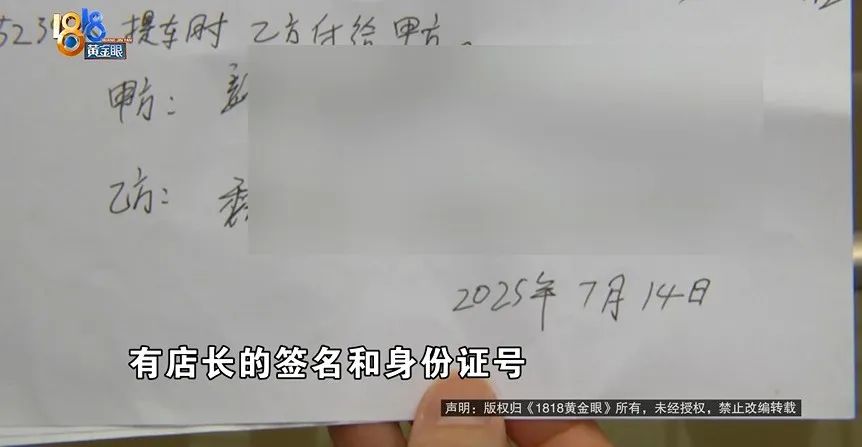 1818
黄金眼
提车时 乙方付给甲方。
甲方：
乙方：
2025年 7月 14日
有店长的签名和身份证号
声明：版权归《1818黄金眼》所有，未经授权，禁止改编转载